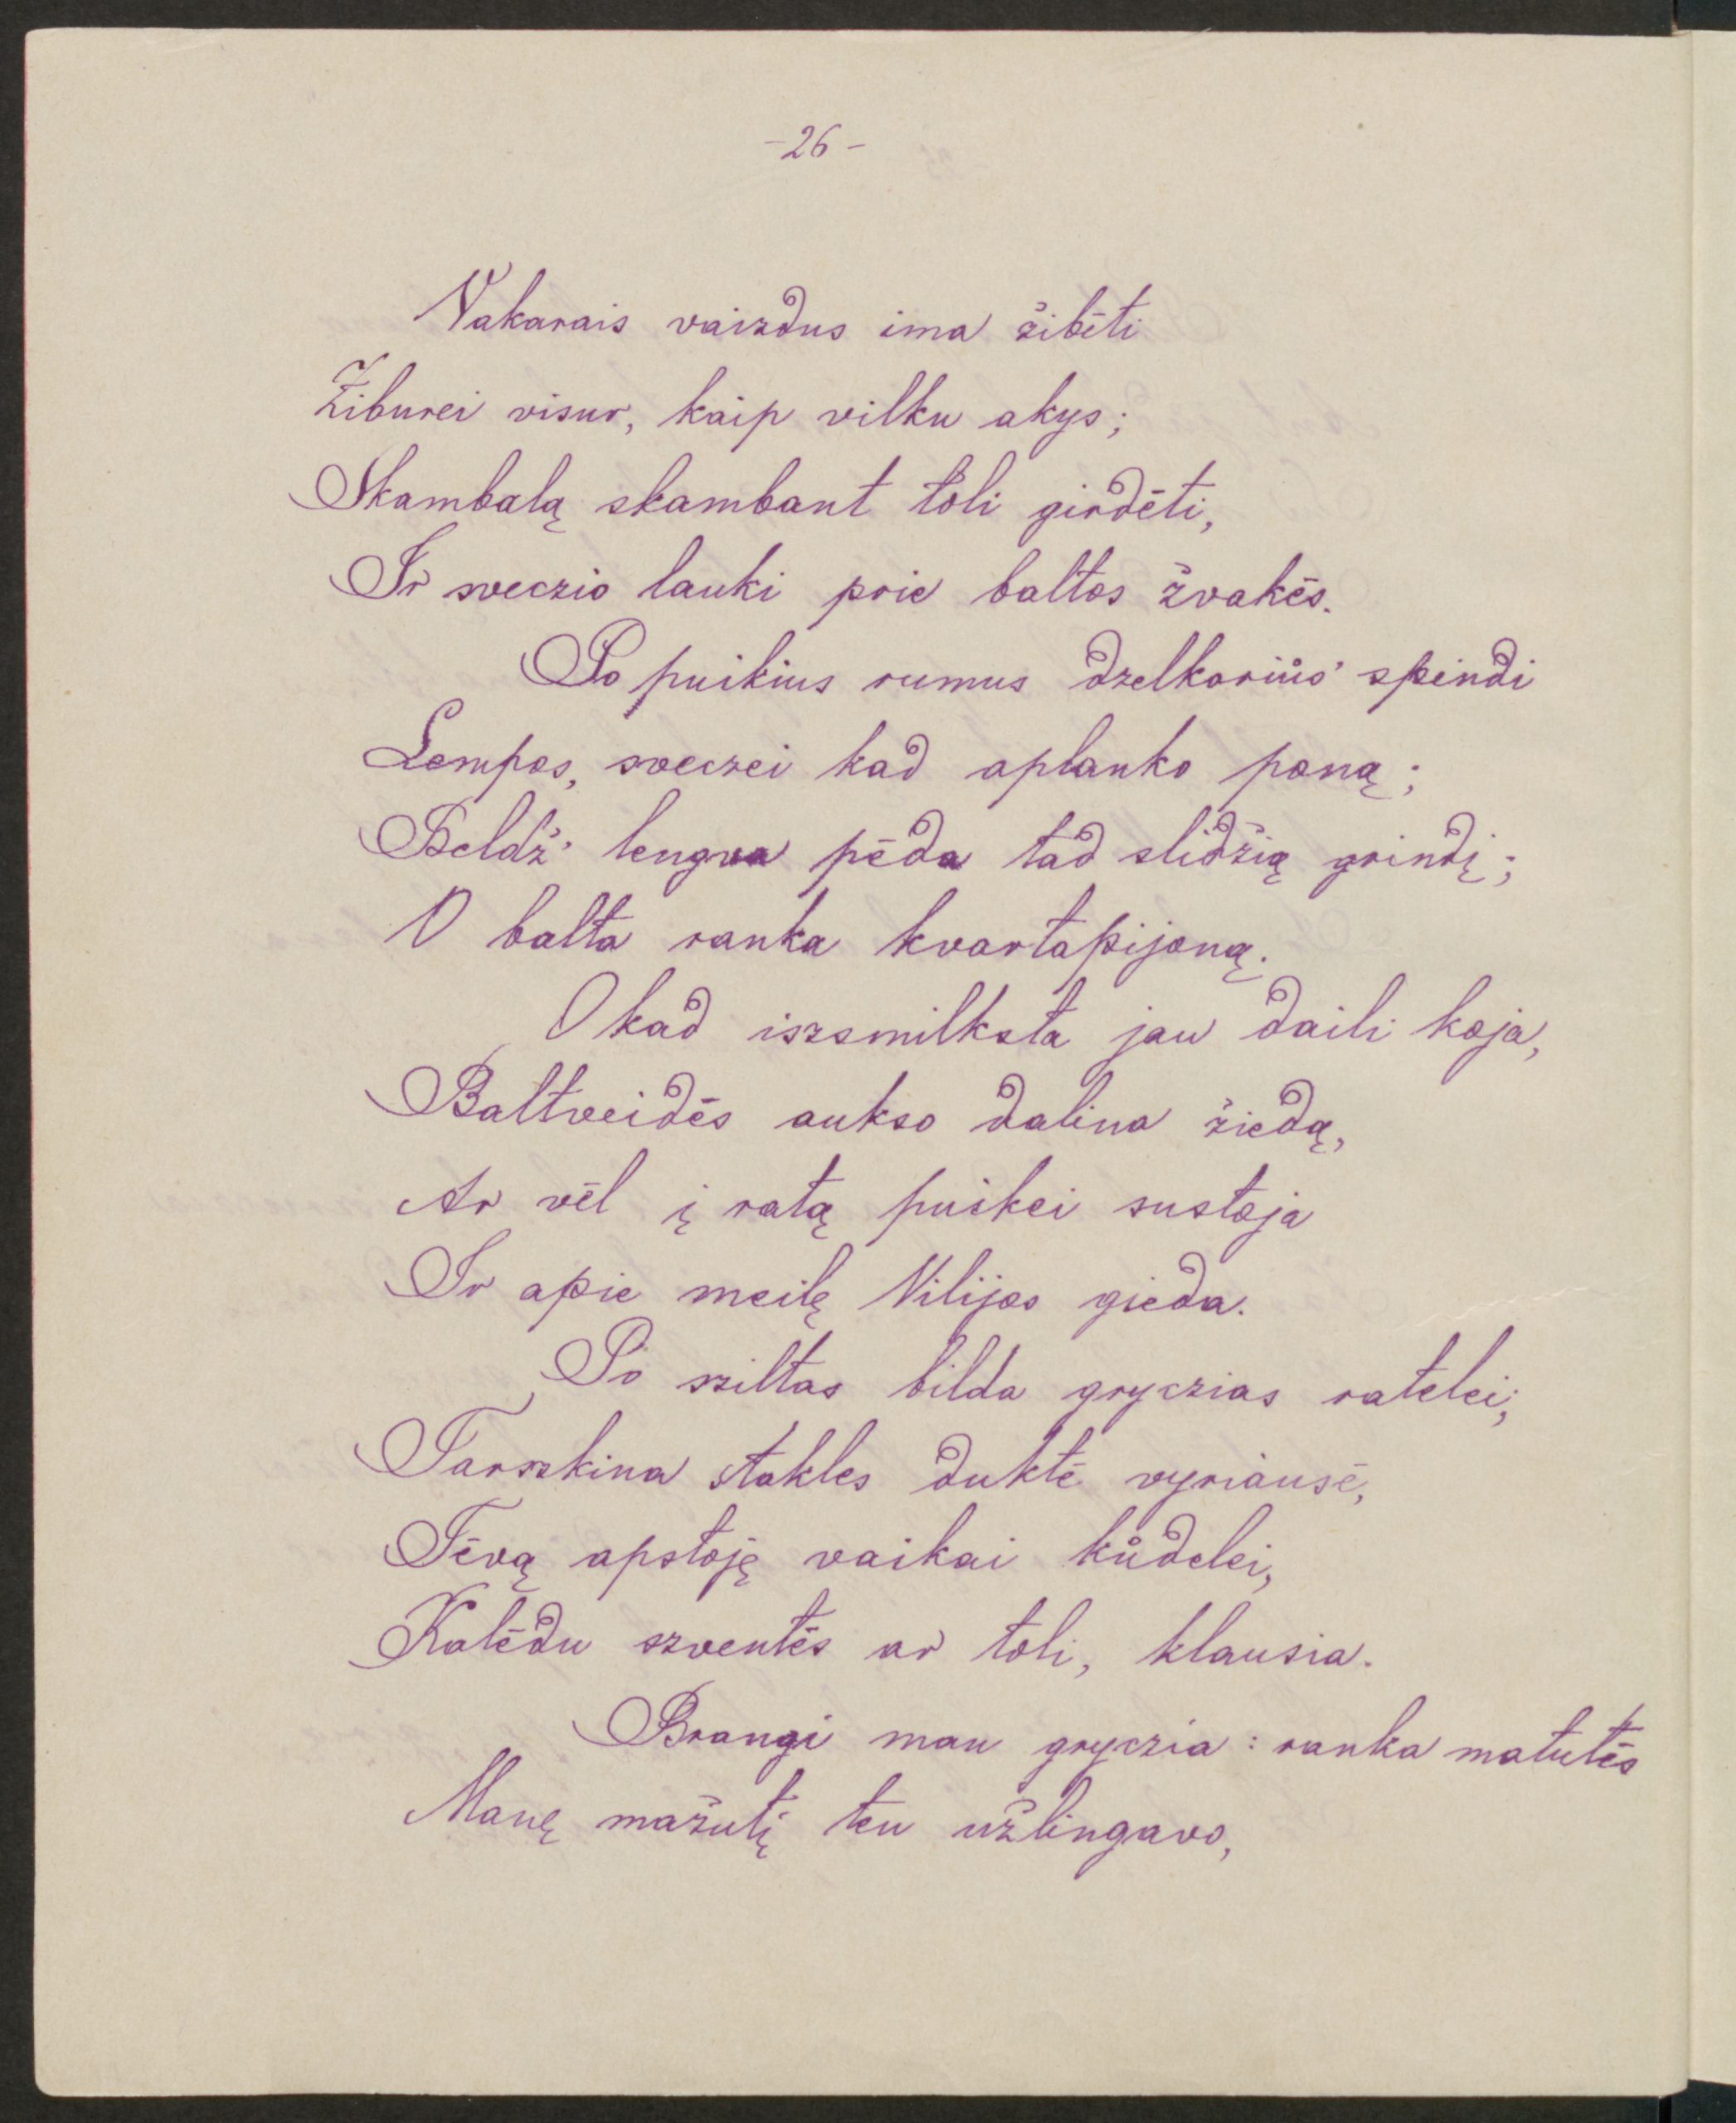 -26-
Vakarais vaizdus ima žibėti
Žiburei visur, kaip vilku akys;
Skambalą skambant toli girdėti,
Ir sveczio lauki prie baltos žvakės.
Po puikius rumus dzelkoriůs' spindi
Lempos, sveczei kad aplanko poną;
Beldž' lengva pėda tad slidžią grindį;
O balta ranka kvartapijoną.
O kad iszsmilksta jau daili koja,
Baltveidės aukso dalina žiedą,
Ar vėl į ratą puikei sustoja
Ir apie meilę Vilijos gieda.
Po sziltas bilda gryczias ratelei;
Tarszkina stakles duktė vyriausė,
Tėvą apstoję vaikai kůdelei,
Kalėdu szventės ar toli, klausia.
Brangi man gryczia: ranka matutės
Manę mažutį ten užlingavo,